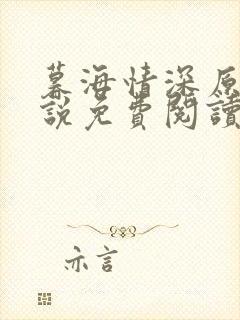 暮海情深原
說免費閱讀
亦言